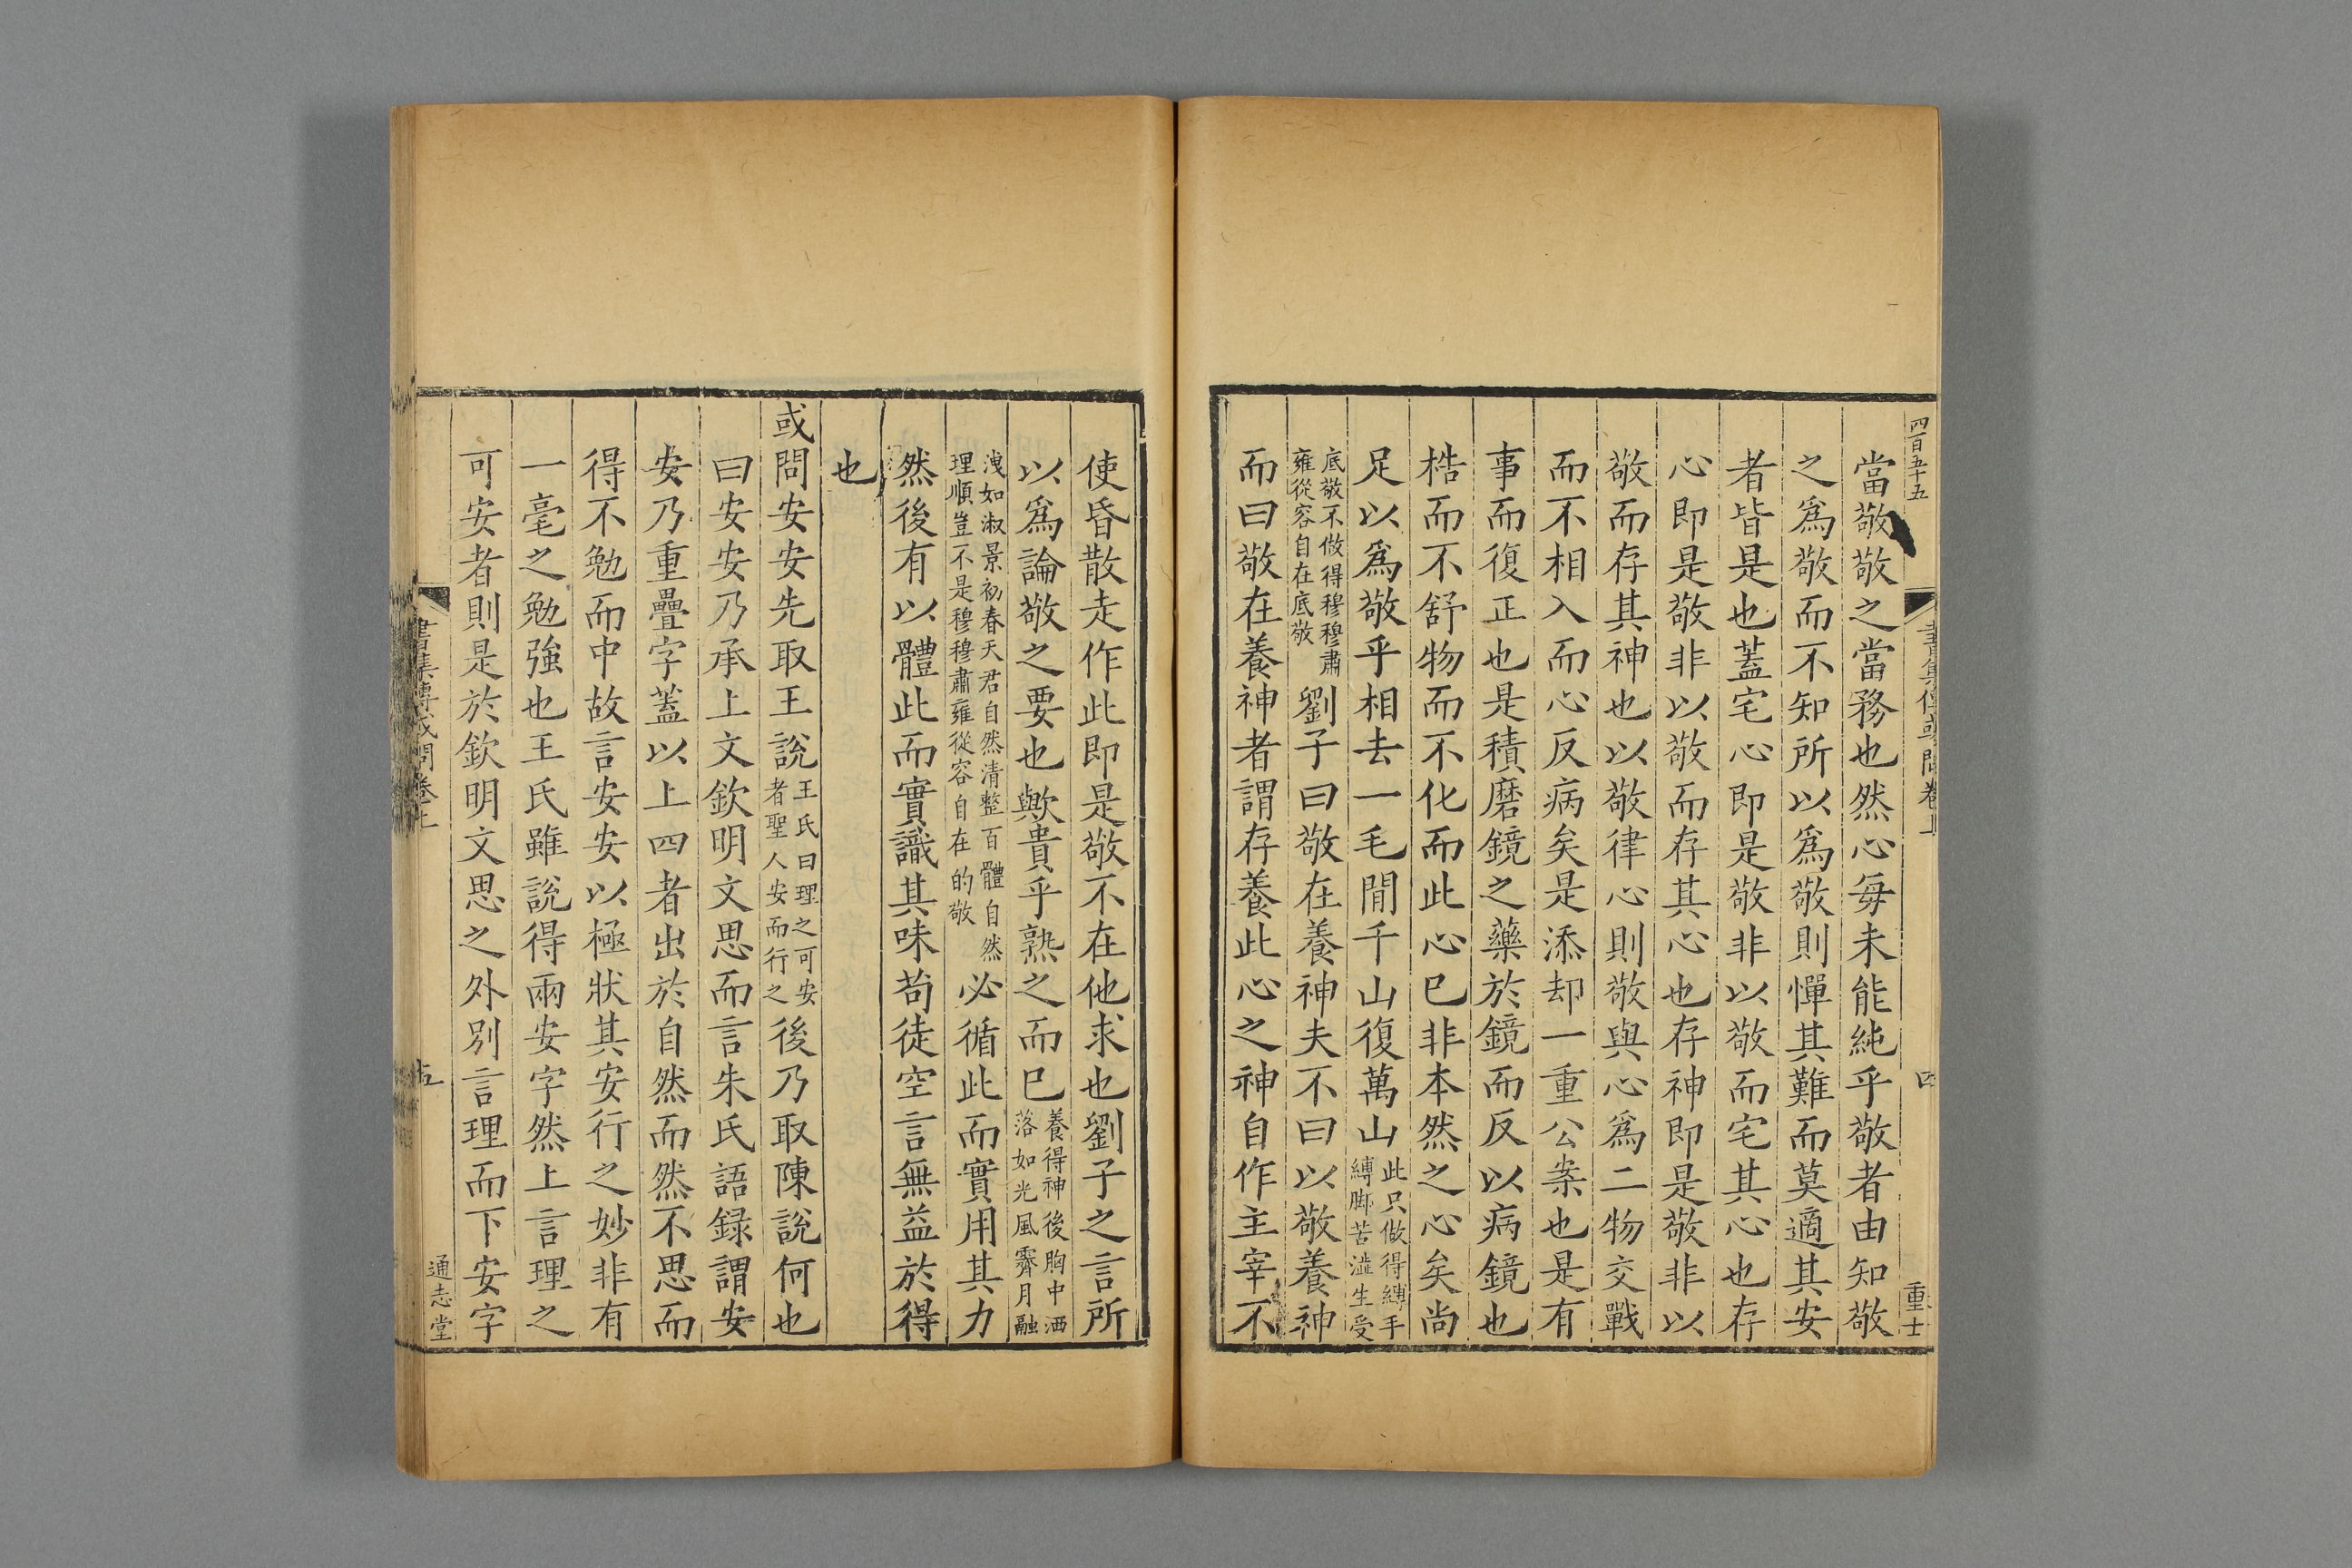 四百五十五
書集傳或問卷上
四
重士
當敬敬之當務也然心每未能純乎敬者由知敬
之爲敬而不知所以爲敬則憚其難而莫適其安
者皆是也蓋宅心即是敬非以敬而宅其心也存
心即是敬非以敬而存其心也存神即是敬非以
敬而存其神也以敬律心則敬與心爲二物交戰
而不相入而心反病矣是添却一重公案也是有
事而復正也是積磨鏡之藥於鏡而反以病鏡也
梏而不舒物而不化而此心已非本然之心矣尚
足以爲敬乎相去一毛間千山復萬山此只做得縛手縛脚苦澁生受
底敬不做得穆穆肅雍從容自在底敬劉子曰敬在養神夫不曰以敬養神
而曰敬在養神者謂存養此心之神自作主宰不
使昏散走作此即是敬不在他求也劉子之言所
以爲論敬之要也歟貴乎熟之而已養得神後胸中洒落如光風霽月融
洩如淑景初春天君自然清整百體自然理順豈不是穆穆肅雍從容自在的敬必循此而實用其力
然後有以體此而實識其味苟徒空言無益於得
也
或問安安先取王說王氏曰理之可安者聖人安而行之後乃取陳說何也
曰安安乃承上文欽明文思而言朱氏語録謂安
安乃重疊字蓋以上四者出於自然而然不思而
得不勉而中故言安安以極狀其安行之妙非有
一毫之勉強也王氏雖說得兩安字然上言理之
可安者則是於欽明文思之外別言理而下安字
書集傳或問卷上
五
通志堂